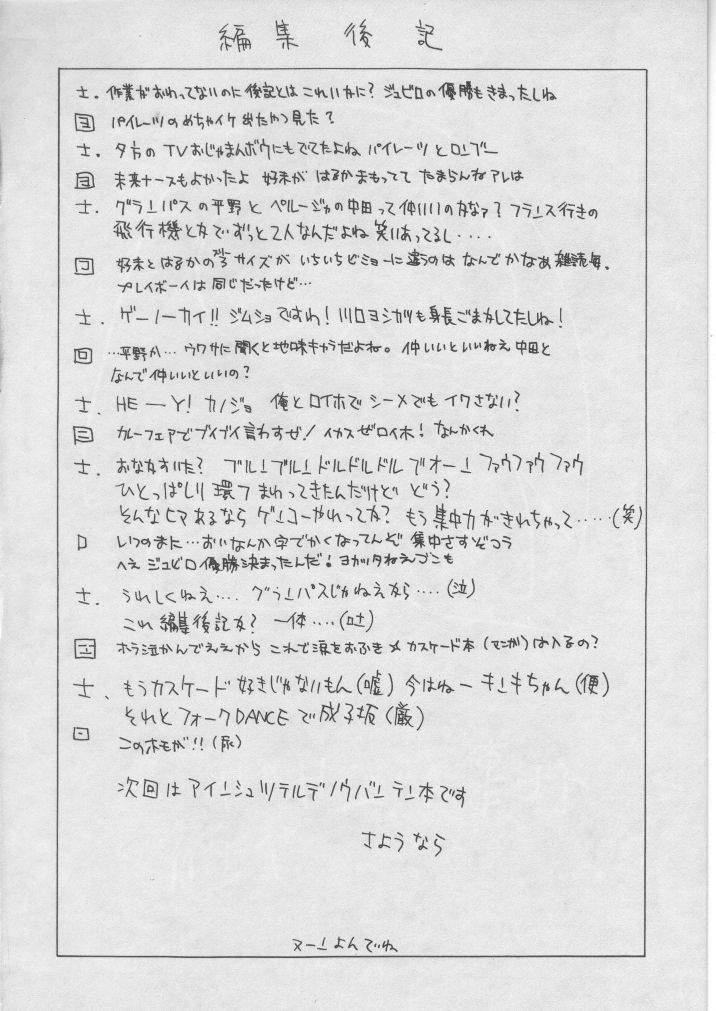 編集後記
士. 作業がおわってないのに後記とはこれいかに? ジュビロの優勝もきまったしね
ヨ パイレーツのめちゃイケ出たやつ見た?
士. 夕方のTVおじゃまんボウにもでてたよね パイレーツとロンブー
ヨ 未来ナースもよかったよ 好未が はるかまもってて たまらんねアレは
士. グランパスの平野とペルージャの中田って仲いいのかなァ? フランス行きの
飛行機とかでずっと2人なんだよね 笑いあってるし・・・・
コ 好未とはるかのサイズがいちいちビミョーに違うのはなんでかなあ 雑誌毎。
プレイボーイは同じだったけど…
士. ゲーノーカイ!! ジムショですわ! 川口ヨシカツも身長ごまかしてたしね!
回 …平野か… ウワサに聞くと地味キャラだよね。仲いいといいねえ中田と
なんで仲いいといいの?
士. HE—Y! カノジョ 俺とロイホで シーメでもイワさない?
三 カレーフェアでブイブイ言わすぜ! イカスぜロイホ! なんかくれ
士. おなかすいた? ブルンブルンドルドルドルでオーン ファウファウファウ
ひとっぱしり 環7まわってきたんだけど どう?
そんなヒマあるなら ゲンコーやれってか? もう集中力がきれちゃって・・・・・(笑)
ロ いつのまに…おいなんか字でかくなってんぞ 集中さすぞコラ
へえ ジュビロ優勝決まったんだ! ヨカッタねえゴンも
士. うれしくねえ・・・・ グランパスじゃねえなら・・・・(泣)
これ編集後記か? 一体・・・・(吐)
ホラ泣かんでええから これで涙をおふき メ カスケード本(マンガ)は入るの?
士、もうカスケード好きじゃないもん(嘘) 今はねーキンキちゃん(便)
それとフォークDANCEで成子坂(厳)
このホモが!!(尿)
次回はアインシュツテルデノウバンテン本です
さようなら
ヌーンよんでね